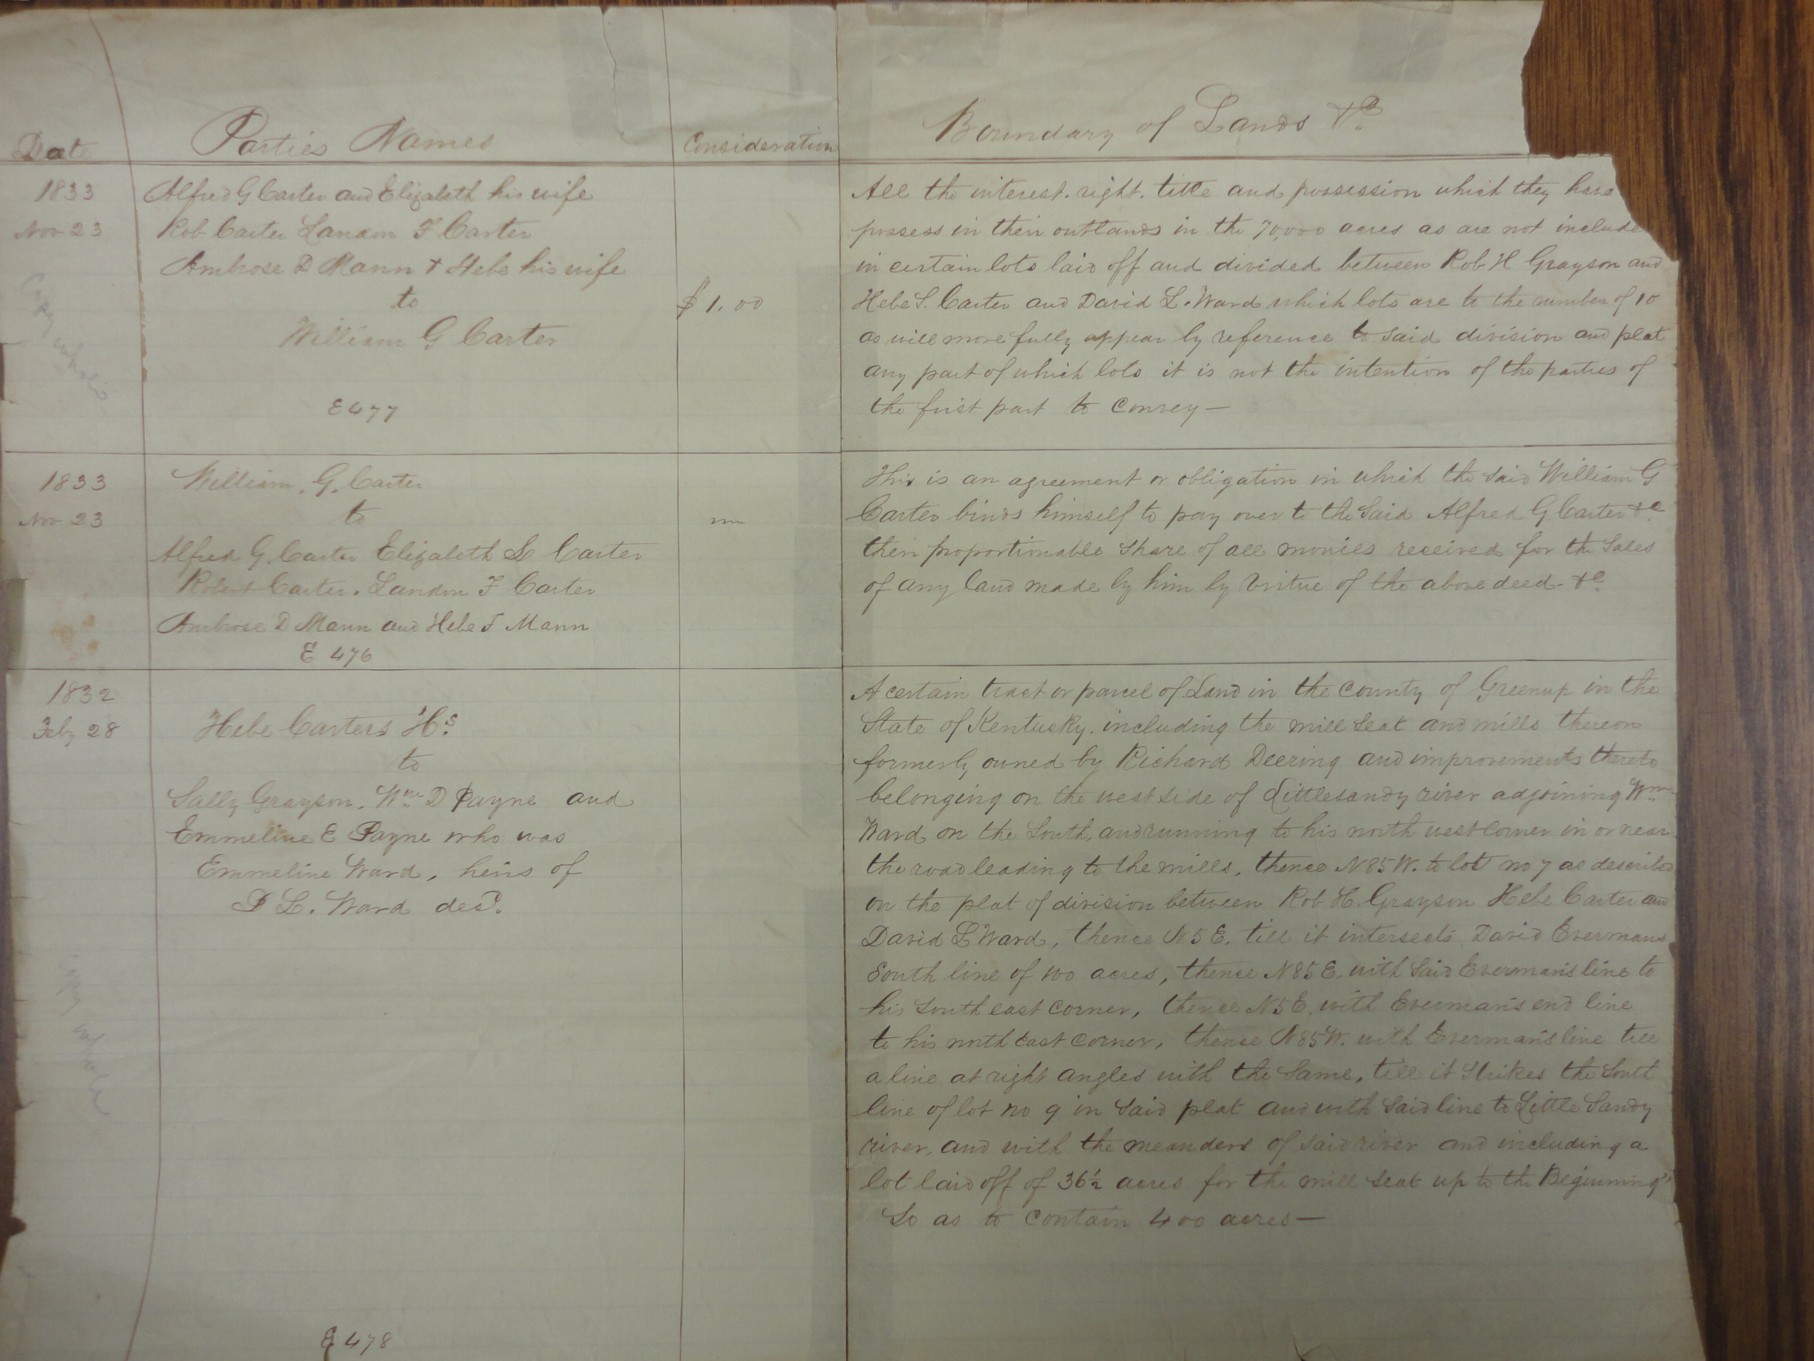 Date
Parties Names
Consideration
Boundary of Lands &c
1833
Nov 23
Alfred G Carter and Elizabeth his wife
Rob Carter Landon F Carter
Ambrose D Mann & Hebe his wife
to
William G Carter
E 477
$1.00
All the interest. right. title and possession which they have
possess in their outlands in the 70,000 acres as are not include
in certain lots laid off and divided between Rob H Grayson and
Hebe S. Carter and David L. Ward which lots are to the number of 10
as will more fully appear by reference to said division and plat
any part of which lots it is not the intention of the parties of
the first part to convey—
1833
Nov 23
William. G. Carter
to
Alfred G. Carter Elizabeth S Carter
Robert Carter. Landon F Carter
Ambrose D Mann and Hebe F Mann
E 476
This is an agreement or obligation in which the said William G
Carter binds himself to pay over to the said Alfred G Carter &c
their proportionable share of all monies received for the sales
of any land made by him by virtue of the above deed &c
1832
Feby 28
Hebe Carters Hs
to
Sally Grayson. Wm D Payne and
Emmeline E Payne who was
Emmeline Ward, heirs of
D L. Ward decd.
E 478
A certain tract or parcel of Land in the county of Greenup in the
State of Kentusky. including the mill seat and mills thereon
formerly owned by Richard Deering and improvements thereto
belonging on the west side of Littlesandy river adjoining Wm
Ward on the South, and running to his north west corner in or near
the road leading to the mills, thence N85W. to lot no 7 as described
on the plat of division between Rob H Grayson Hebe Carter and
David L Ward, thence N5E. till it intersects David Evermans
South line of 100 acres, thence N85E with said Everman's line to
his South east corner, thence N5E. with Everman's end line
to his north East corner, thence N85W. with Everman's line till
a line at right angles with the same, till it strikes the South
line of lot no 9 in said plat and with said line to Little Sandy
river, and with the meanders of said river and including a
lot laid off of 36½ acres for the mill seat up to the Beginning"
So as to contain 400 acres—